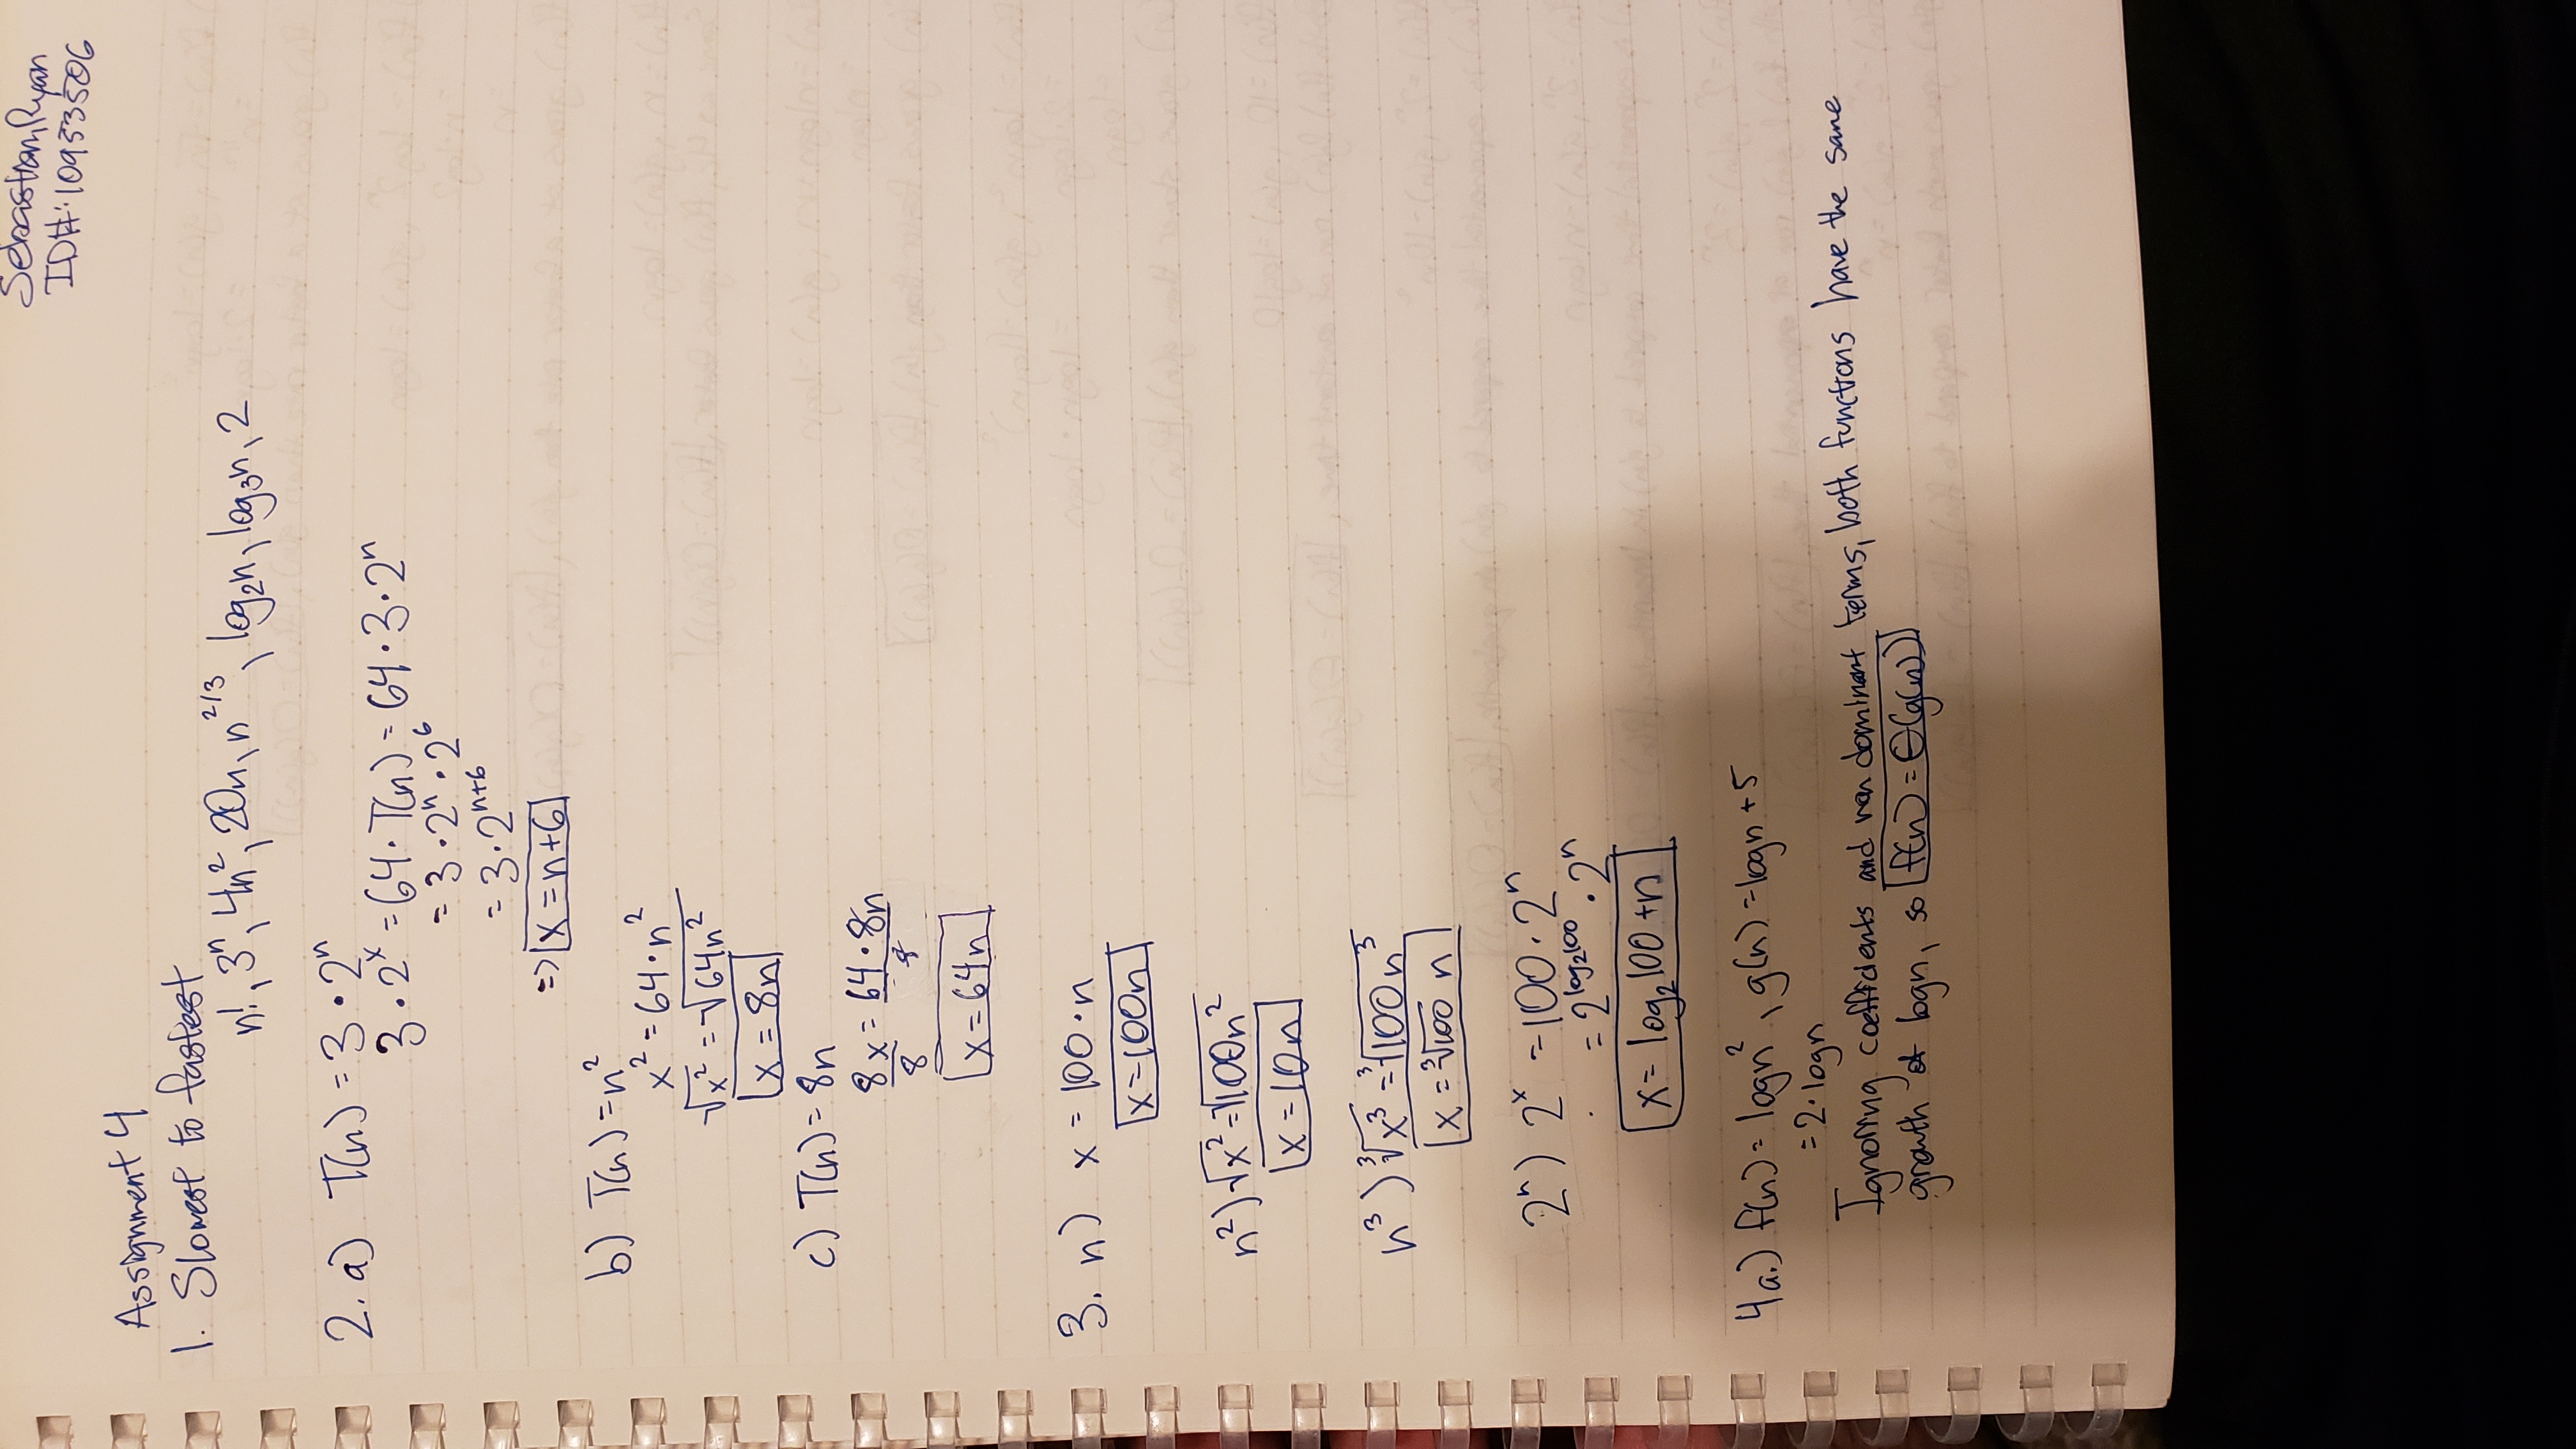 Sebastian Ryan
ID#: 10953506
Assignment 4
1. Slowest to fastest
n!, 3ⁿ, 4n², 20n, n^2/3, log₂n, log₃n, 2
2. a) T(n) = 3 · 2ⁿ
3 · 2ˣ = 64 · T(n) = 64 · 3 · 2ⁿ
= 3 · 2ⁿ · 2⁶
= 3 · 2ⁿ⁺⁶
=> x = n+6
b) T(n) = n²
x² = 64 · n²
√x² = √64n²
x = 8n
c) T(n) = 8n
8x = 64 · 8n
8 8
x = 64n
3. n) x = 100 · n
x = 100n
n²) √x² = √100n²
x = 10n
n³) ∛x³ = ∛100n³
x = ∛100 n
2ⁿ) 2ˣ = 100 · 2ⁿ
= 2^log₂100 · 2ⁿ
x = log₂100 + n
4a.) f(n) = logn², g(n) = logn + 5
= 2 · logn
Ignoring coefficients and non dominant terms, both functions have the same
growth of logn, so f(n) = Θ(g(n))